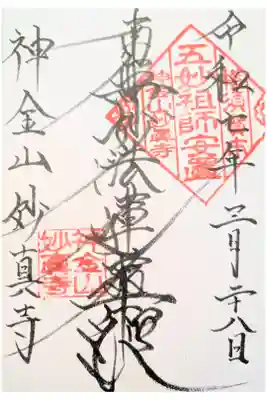 令和七年三月二十八日
五妙祖師安置
南無妙法蓮華経
神金山
妙真寺
神金山妙真寺